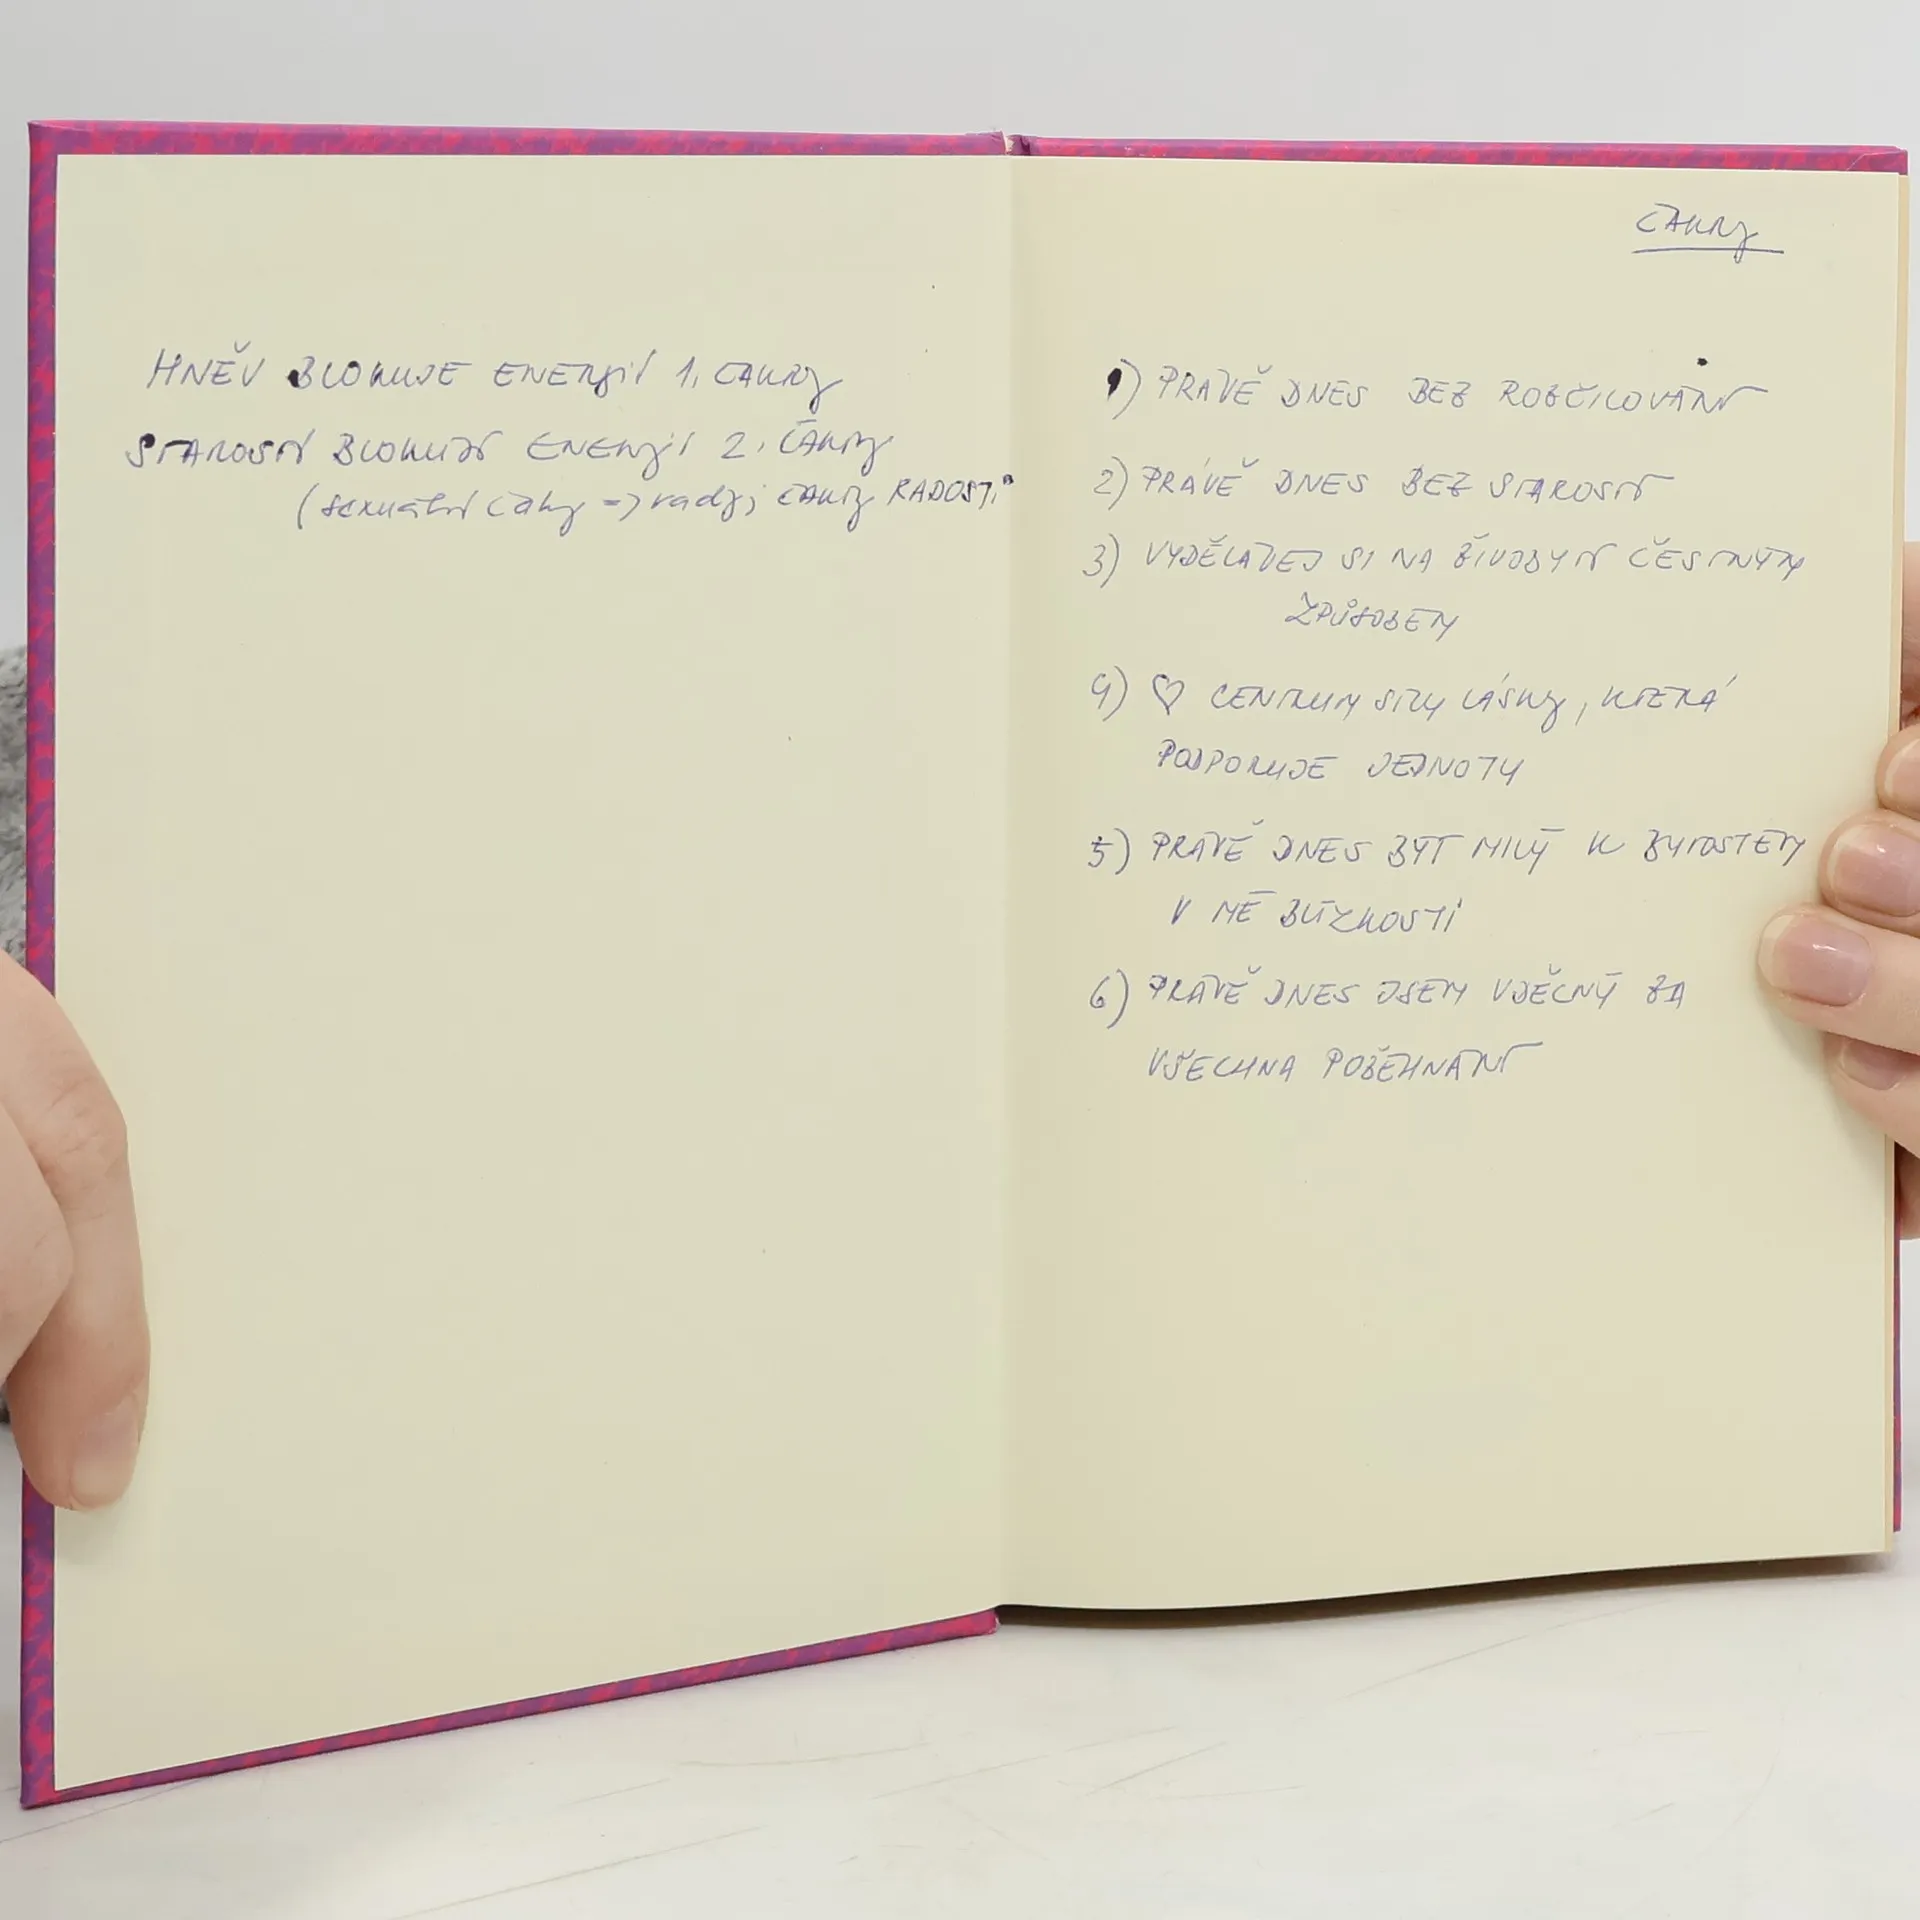 HNĚV BLOKUJE ENERGII 1. ČAKRY
STAROSTI BLOKUJÍ ENERGII 2. ČAKRY
(sexuální čakry => raději čakry RADOSTI)
ČAKRY
1) PRÁVĚ DNES BEZ ROZČILOVÁNÍ
2) PRÁVĚ DNES BEZ STAROSTÍ
3) VYDĚLÁVEJ SI NA ŽIVOBYTÍ ČESTNÝM
ZPŮSOBEM
4) ♡ CENTRUM SÍLY LÁSKY, KTERÁ
PODPORUJE JEDNOTY
5) PRÁVĚ DNES BÝT MILÝ K BYTOSTEM
V MÉ BLÍZKOSTI
6) PRÁVĚ DNES JSEM VDĚČNÝ ZA
VŠECHNA POŽEHNÁNÍ